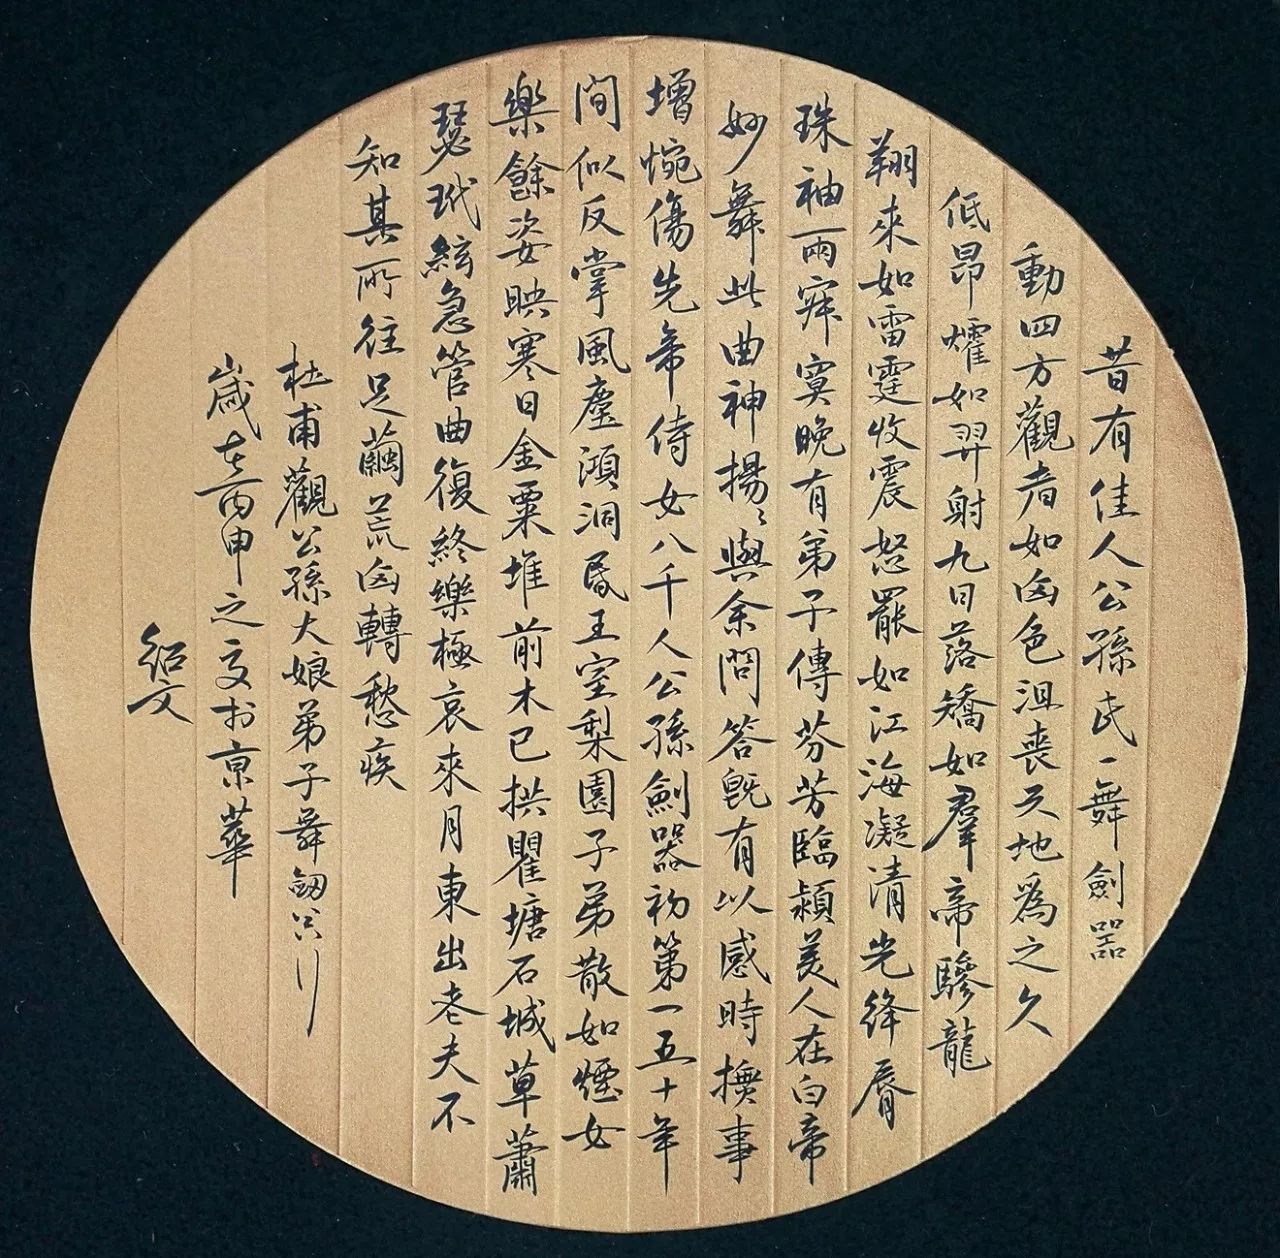 昔有佳人公孫氏一舞劍器
動四方觀者如山色沮喪天地為之久
低昂㸌如羿射九日落矯如羣帝驂龍
翔來如雷霆收震怒罷如江海凝清光絳脣
珠袖兩寂寞晚有弟子傳芬芳臨潁美人在白帝
妙舞此曲神揚〻與余問答既有以感時撫事
增惋傷先帝侍女八千人公孫劍器初第一五十年
間似反掌風塵澒洞昏王室梨園子弟散如煙女
樂餘姿映寒日金粟堆前木已拱瞿塘石城草蕭
瑟玳絃急管曲復終樂極哀來月東出老夫不
知其所往足繭荒山轉愁疾
杜甫觀公孫大娘弟子舞劍器行
歲在丙申之夏於京華
紹文